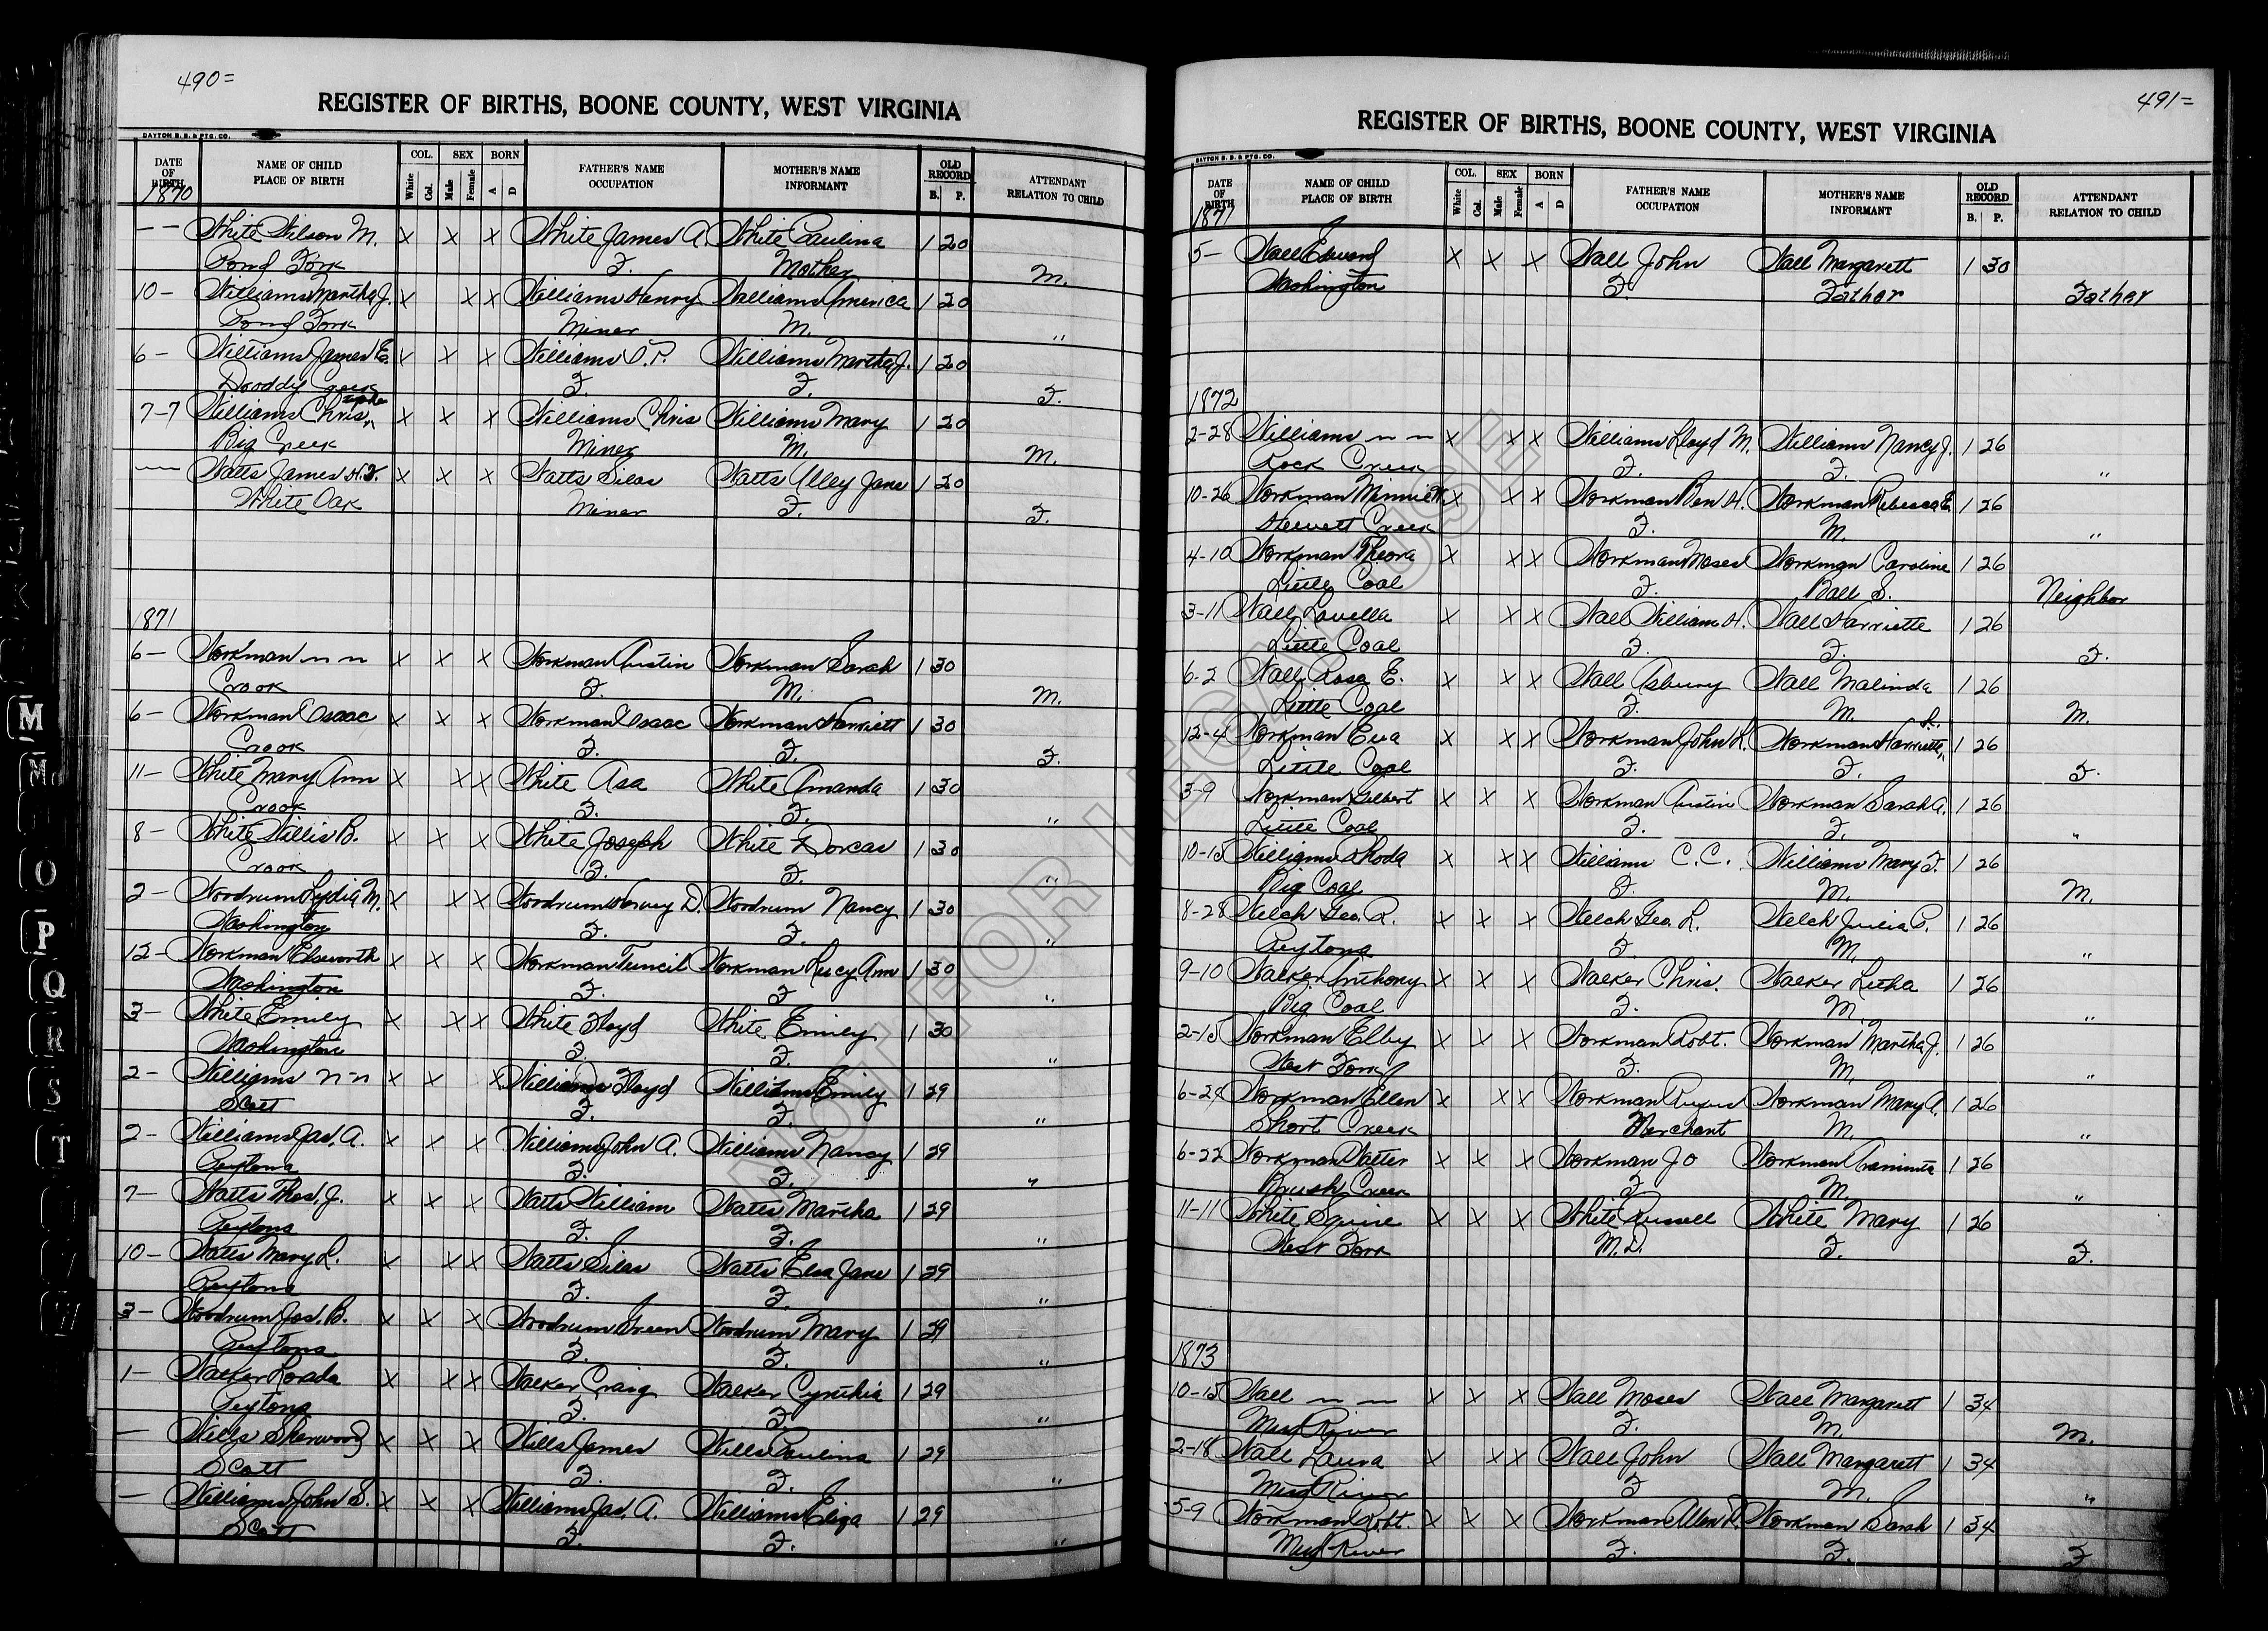 490=
REGISTER OF BIRTHS, BOONE COUNTY, WEST VIRGINIA
DAYTON B. B. & PTG. CO.
DATE OF BIRTH NAME OF CHILD PLACE OF BIRTH COL. White Col. SEX Male Female BORN A D FATHER'S NAME OCCUPATION MOTHER'S NAME INFORMANT OLD RECORD B. P. ATTENDANT RELATION TO CHILD
1870
-- White Wilson M. X X X White James A. White Paulina 1 20
Pond Fork F. Mother M.
10- Williams Martha J. X X X Williams Henry Williams America 1 20
Pond Fork Miner M. "
6- Williams James E. X X X Williams O.P. Williams Martha J. 1 20
Droddy Creek F. F. F.
7-7 Williams Chris X X X Williams Chris Williams Mary 1 20
Big Creek Miner M. M.
-- Watts James H.F. X X X Watts Silas Watts Alley Jane 1 20
White Oak Miner F. F.
1871
6- Workman n n X X X Workman Austin Workman Sarah 1 30
Crook F. M. M.
6- Workman Isaac X X X Workman Isaac Workman Harriett 1 30
Crook F. F. F.
11- White Mary Ann X X X White Asa White Amanda 1 30
Crook F. F. "
8- White Willis B. X X X White Joseph White Dorcas 1 30
Crook F. F. "
2- Woodrum Lydia M. X X X Woodrum Harvey D. Woodrum Nancy 1 30
Washington F. F. "
12- Workman Elsworth X X X Workman Tuncil Workman Lucy Ann 1 30
Washington F. F "
3- White Emily X X X White Floyd White Emily 1 30
Washington F. F. "
2- Williams n-n X X X Williams Floyd Williams Emily 1 29
Scott F. F. "
2- Williams Jas. A. X X X Williams John A. Williams Nancy 1 29
Peytona F. F. "
7- Watts Thos. J. X X X Watts William Watts Martha 1 29
Peytona F. F. "
10- Watts Mary L. X X X Watts Silas Watts Elsa Jane 1 29
Peytona F. F. "
3- Woodrum Jos. B. X X X Woodrum Green Woodrum Mary 1 29
Peytona F. F. "
1- Walker Loada X X X Walker Craig Walker Cynthia 1 29
Peytona F. F. "
- Wills Sherwood X X X Wills James Wills Paulina 1 29
Scott F. F. "
- Williams John S. X X X Williams Jas. A. Williams Eliza 1 29
Scott F. F. "
491=
REGISTER OF BIRTHS, BOONE COUNTY, WEST VIRGINIA
DAYTON B. B. & PTG. CO.
DATE OF BIRTH NAME OF CHILD PLACE OF BIRTH COL. White Col. SEX Male Female BORN A D FATHER'S NAME OCCUPATION MOTHER'S NAME INFORMANT OLD RECORD B. P. ATTENDANT RELATION TO CHILD
1871
5- Wall Edward X X X Wall John Wall Margarett 1 30
Washington F. Father Father
1872
2-28 Williams n n X X X Williams Lloyd M. Williams Nancy J. 1 26
Rock Creek F. F. "
10-26 Workman Minnie X X X Workman Ben H. Workman Rebecca E. 1 26
Hewett Creek F. M. "
4-10 Workman Theora X X X Workman Moses Workman Caroline 1 26
Little Coal F. Ball S. Neighbor
3-11 Wall Louella X X X Wall William H. Wall Harriette 1 26
Little Coal F. F. F.
6-2 Wall Rosa E. X X X Wall Asbury Wall Malinda 1 26
Little Coal F. M. M.
12-4 Workman Eva X X X Workman John L. Workman Harriette 1 26
Little Coal F. F. F.
3-9 Workman Gilbert X X X Workman Austin Workman Sarah A. 1 26
Little Coal F. F. "
10-15 Williams Rhoda X X X Williams C.C. Williams Mary F. 1 26
Big Coal F. M. M.
8-28 Welch Geo. R. X X X Welch Geo. L. Welch Julia P. 1 26
Peytona F. M. "
9-10 Walker Anthony X X X Walker Chris. Walker Letha 1 26
Big Coal F. M. "
2-15 Workman Elby X X X Workman Robt. Workman Martha J. 1 26
West Fork F. M. "
6-24 Workman Ellen X X X Workman Rufus Workman Mary A. 1 26
Short Creek Merchant M. "
6-22 Workman Walter X X X Workman Jo Workman Araminta 1 26
Brush Creek F M. "
11-11 White Squire X X X White Russell White Mary 1 26
West Fork M.D. F. F.
1873
10-15 Wall n n X X X Wall Moses Wall Margarett 1 34
Mud River F. M. M.
2-18 Wall Laura X X X Wall John Wall Margarett 1 34
Mud River F M. "
5-9 Workman Robt. X X X Workman Allen Workman Sarah 1 34
Mud River F. F. F
NOT FOR LEGAL USE
M
O
P
Q
R
S
T